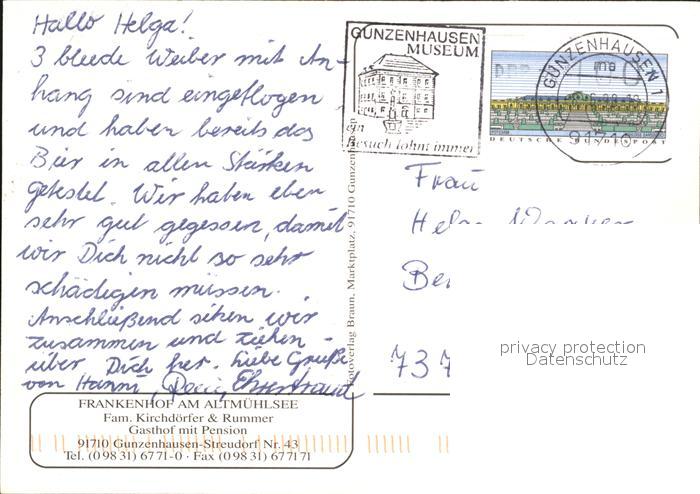 Hallo Helga!
3 bleede Weiber mit An-
hang sind eingeflogen
und haben bereits das
Bier in allen Stärken
getestet. Wir haben eben
sehr gut gegessen, damit
wir Dich nicht so sehr
schädigen müssen.
Anschließend sitzen wir
zusammen und ziehen
über Dich her. Liebe Grüße
von Hanni,
FRANKENHOF AM ALTMÜHLSEE
Fam. Kirchdörfer & Rummer
Gasthof mit Pension
91710 Gunzenhausen-Streudorf Nr. 43
Tel. (0 98 31) 67 71-0 · Fax (0 98 31) 67 71 71
Fotoverlag Braun, Marktplatz, 91710 Gunzenhausen
GUNZENHAUSEN
MUSEUM
ein
Besuch lohnt immer
GUNZENHAUSEN 1
DEUTSCHE BUNDESPOST
Frau
737
privacy protection
Datenschutz